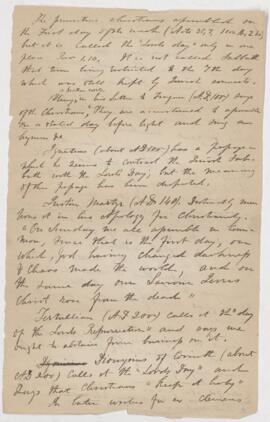 The primitive Christians assembled on
the First day of the week (Acts 20,7, 1 Cor 16,2)
but it is called the Lord's day only in one
place Rev 1,10. It is not called Sabbath
that term being restricted to the 7th day
which was still kept by Jewish converts.
Pliny in his letter to Trajan (A.D. 107) says
of the Christians, They are accustomed to assemble
on a stated day before light and sing an
hymn &c
Ignatius (about AD 100) has a passage in
which he seems to contrast the Jewish Sab-
bath with the Lord's Day, but the meaning
of this passage has been disputed.
Justin Martyr (A.D. 140). Distinctly men
tions it in his Apology for Christianity.
"On Sunday we all assemble in com-
mon, since that is the first day, on
which, God, having changed darkness
& Chaos made the world, and on
the same day our Saviour Jesus
Christ rose from the dead"
Tertullian (A.D. 200) calls it the day
of the Lord's Resurrection" and says we
ought to abstain from business on it.
Dionysius of Corinth (about
A.D. 200) calls it the "Lord's Day" and
says that Christians "keep it holy"
In later writers for ex Clemens